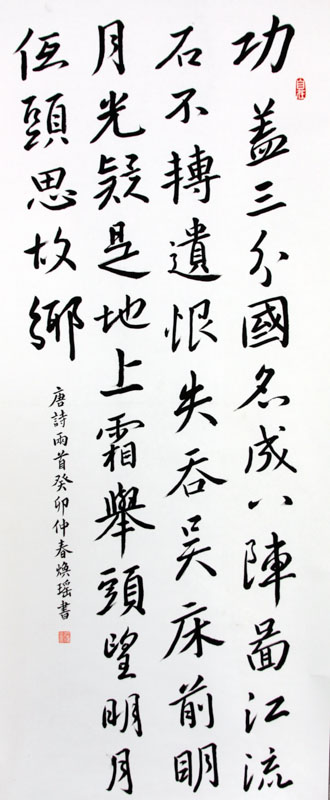 功蓋三分國名成八陣圖江流
石不轉遺恨失吞吴床前明
月光疑是地上霜舉頭望明月
低頭思故鄉
唐詩兩首癸卯仲春煥瑶書